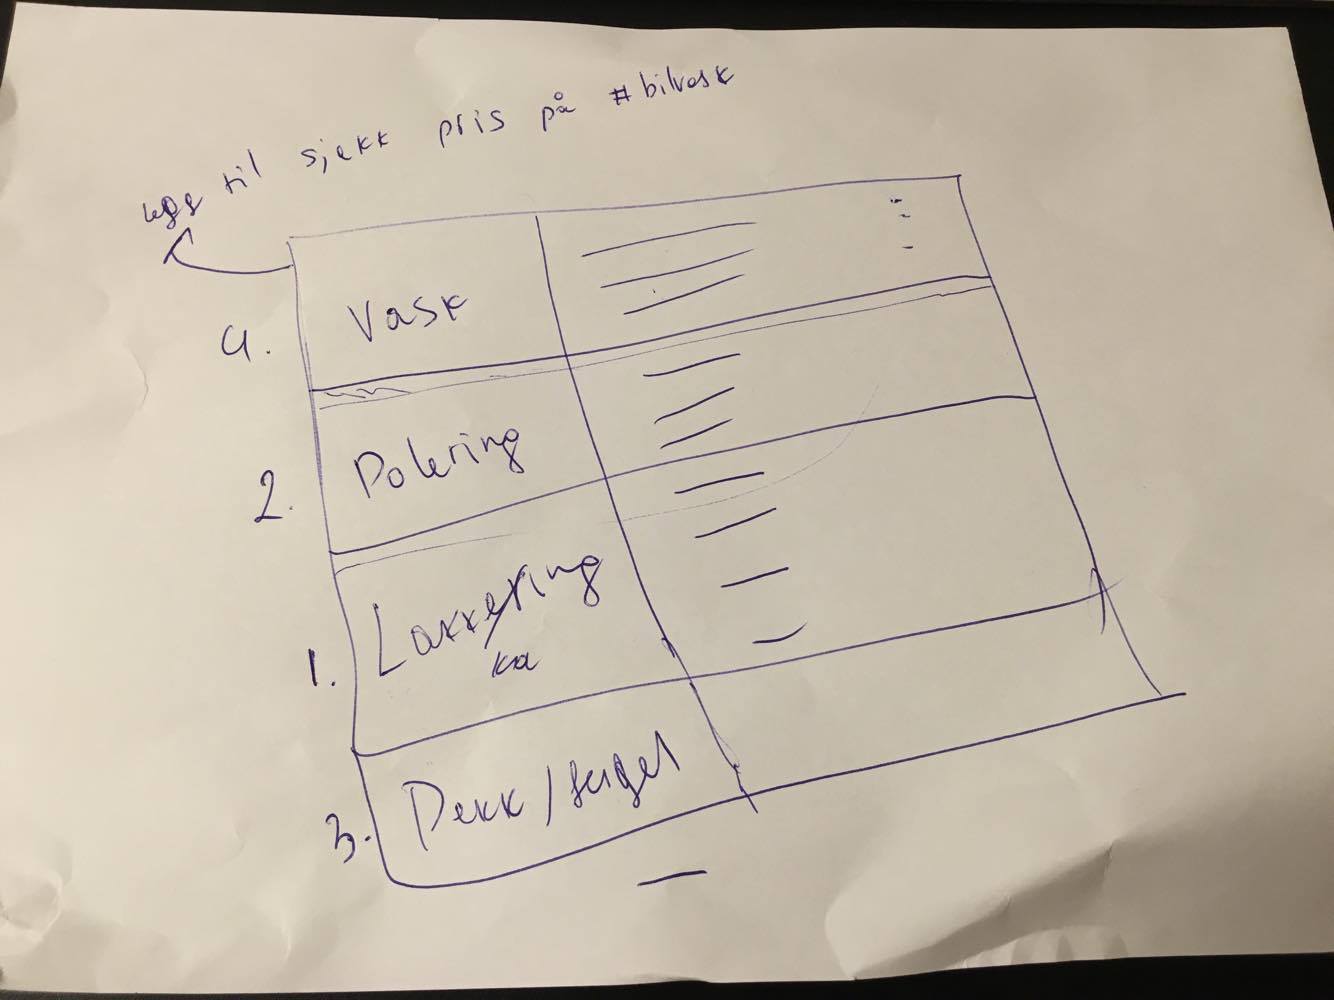 legg til sjekk pris på #bilvask
4. Vask
2. Polering
1. Lakkering
ka
3. Dekk/felger